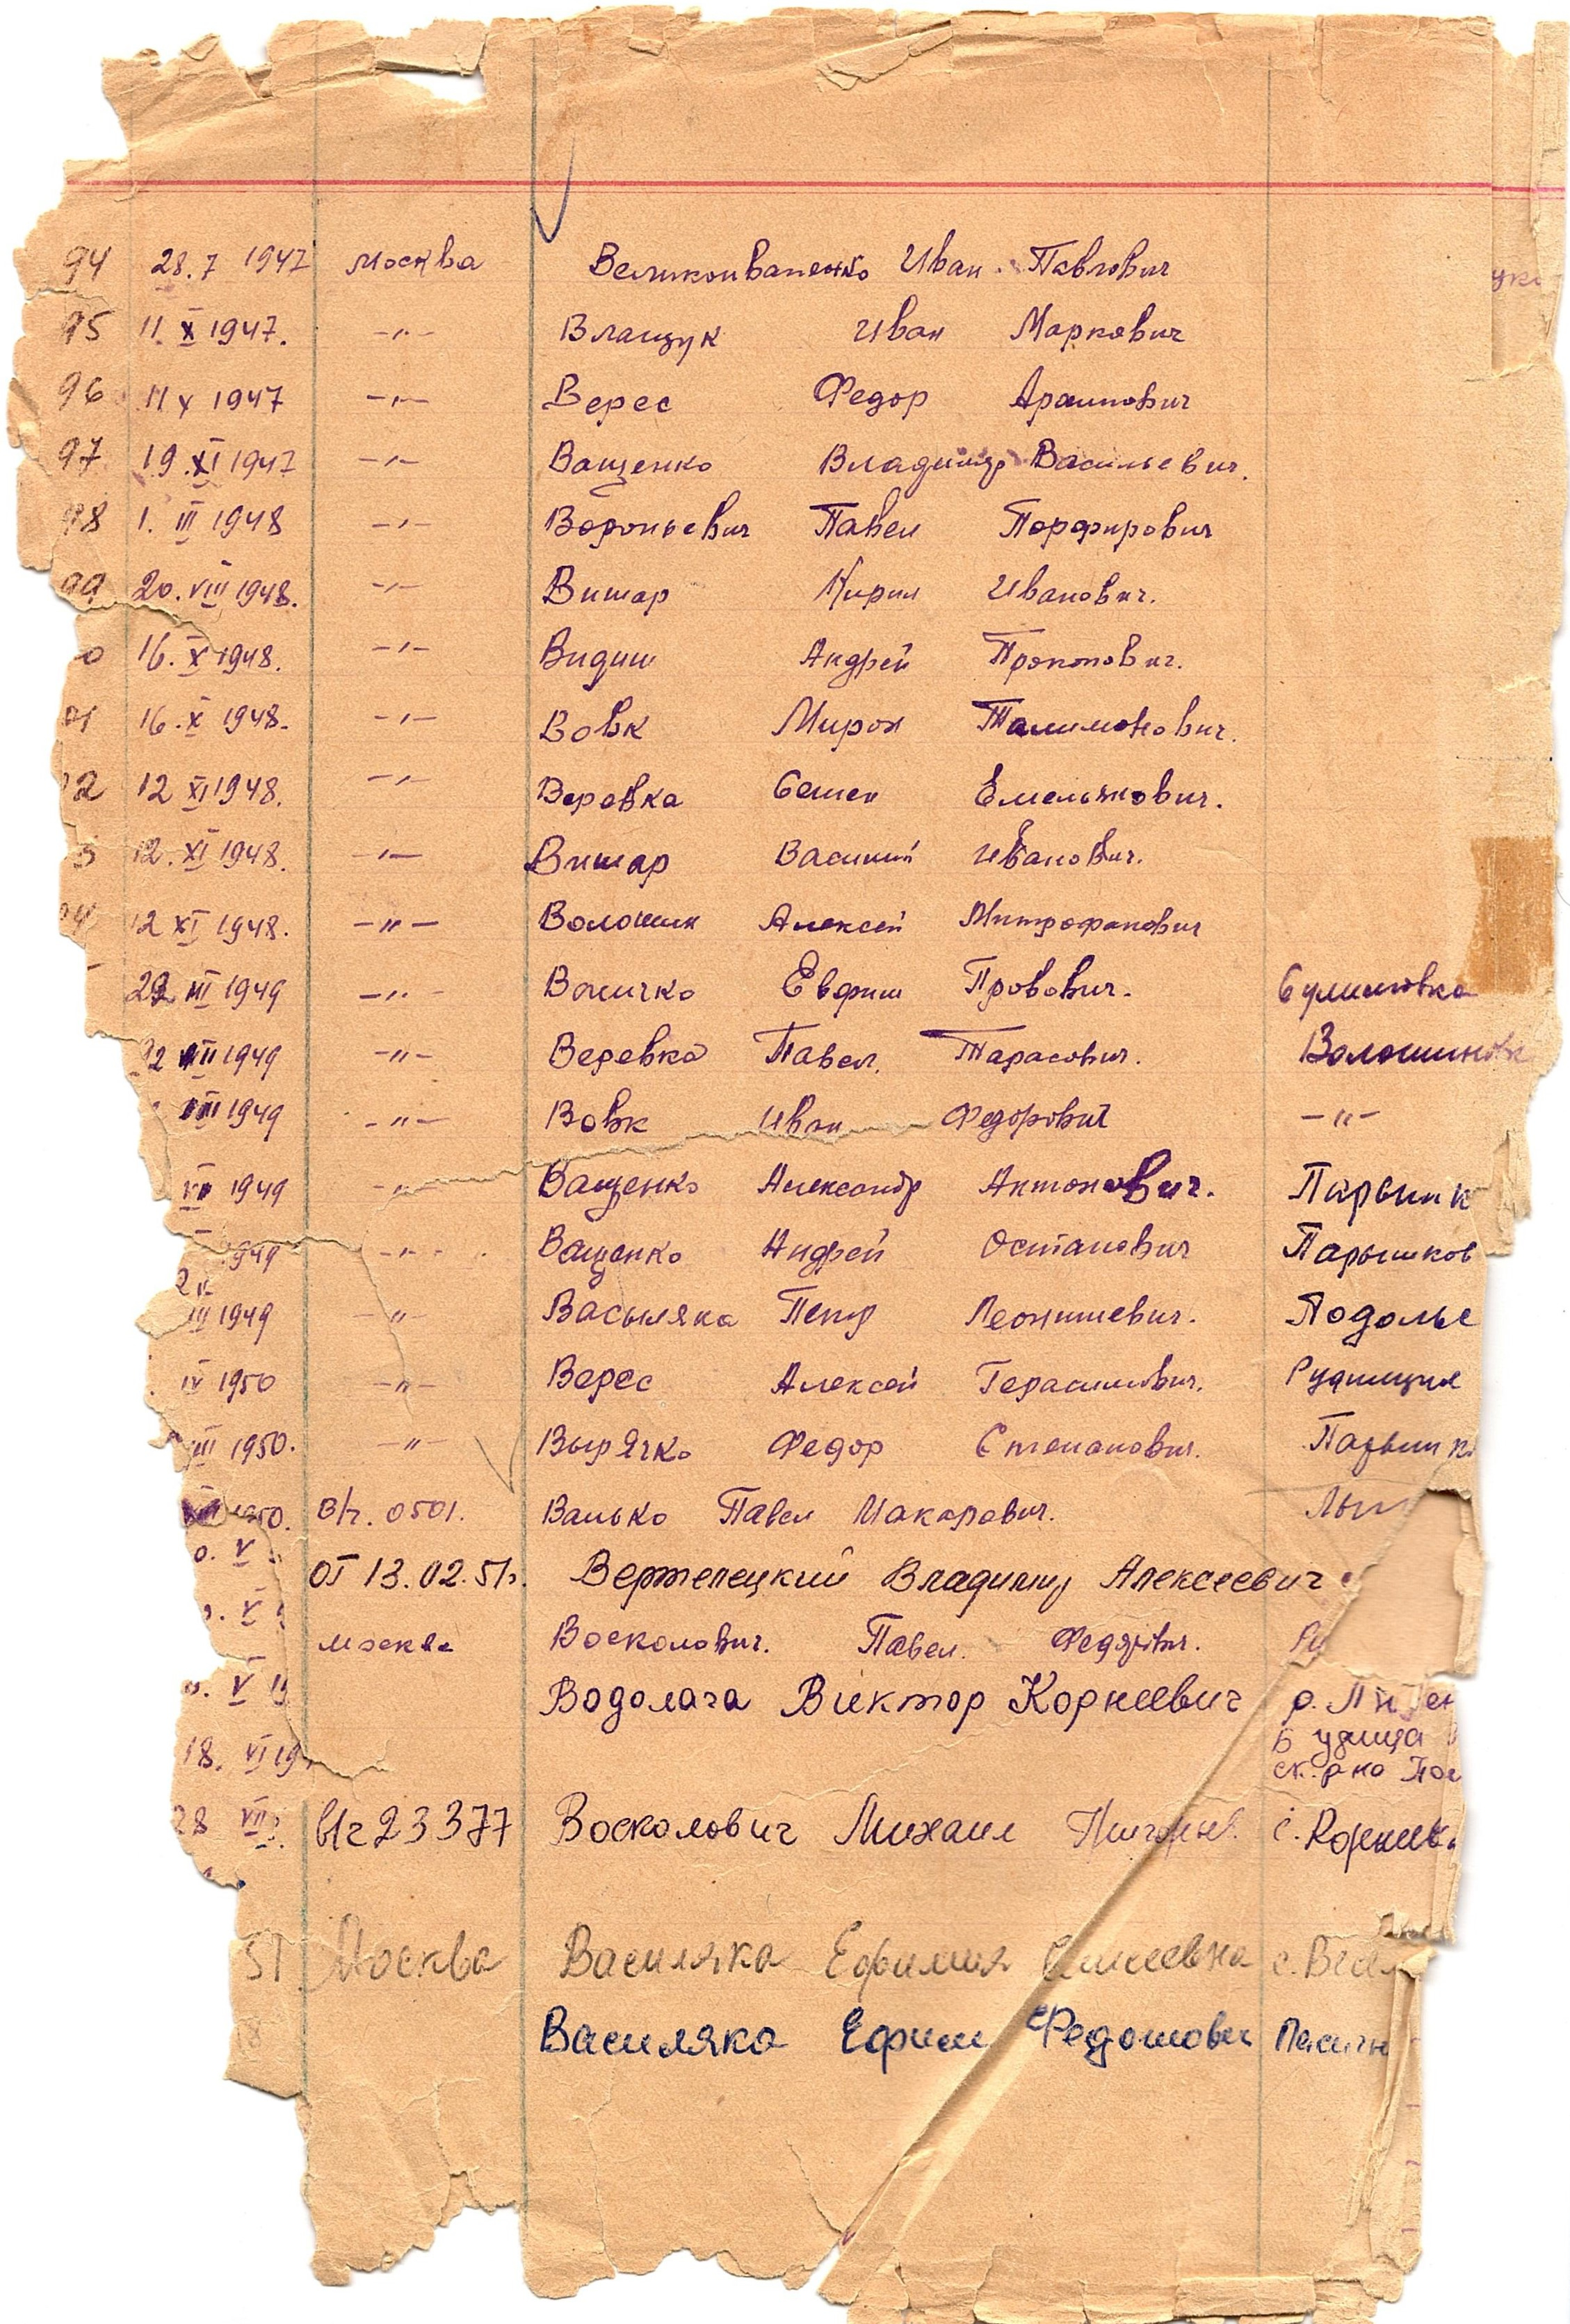 94 28.7 1947 Москва Великоиваненко Иван Павлович
95 11. X 1947. -"- Влащук Иван Маркович
96 11 X 1947 -"- Верес Федор
97 19. XI 1947 -"- Ващенко Владимир Васильевич.
98 1. III 1948 -"- Вороньевич Павел Порфирович
99 20. VIII 1948. -"- Витар Кирил Иванович.
0 16. X 1948. -"- Видиш Андрей Прокопович.
01 16. X 1948. -"- Вовк Мирон Талимонович.
02 12 XI 1948. -"- Веревка Семен Емельянович.
3 12. XI 1948. -"- Витар Василий Иванович.
04 12 XI 1948. -"- Волошин Алексей Митрофанович
22 III 1949 -"- Евфим Провович. Сулимовка
22 III 1949 -"- Веревка Павел. Тарасович. Волошиновк
III 1949 -"- Вовк Иван Федорович -"-
1949 -"- Ващенко Александр Антонович. Парышк
1949 -"- Ващенко Андрей Остапович Парышков
III 1949 -"- Васыляка Петр Подолье
IV 1950 -"- Верес Алексей Герасимович.
III 1950. -"- Вырячко Федор Степанович. Парышк
1950. в/ч. 0501. Ванько Павел Макарович.
о. V
от 13.02.51г. Вертепецкий Владимир Алексеевич
. V
Москва Восколович. Павел. Федорович.
о. V 19
Водолага Виктор Корнеевич
Будища
18. VI 19
28 VII в/ч 23377 Восколович Михаил Григорьев. с. Корнеев
51 Москва Василяка Ефимия с.
Василяка Ефим Федотович